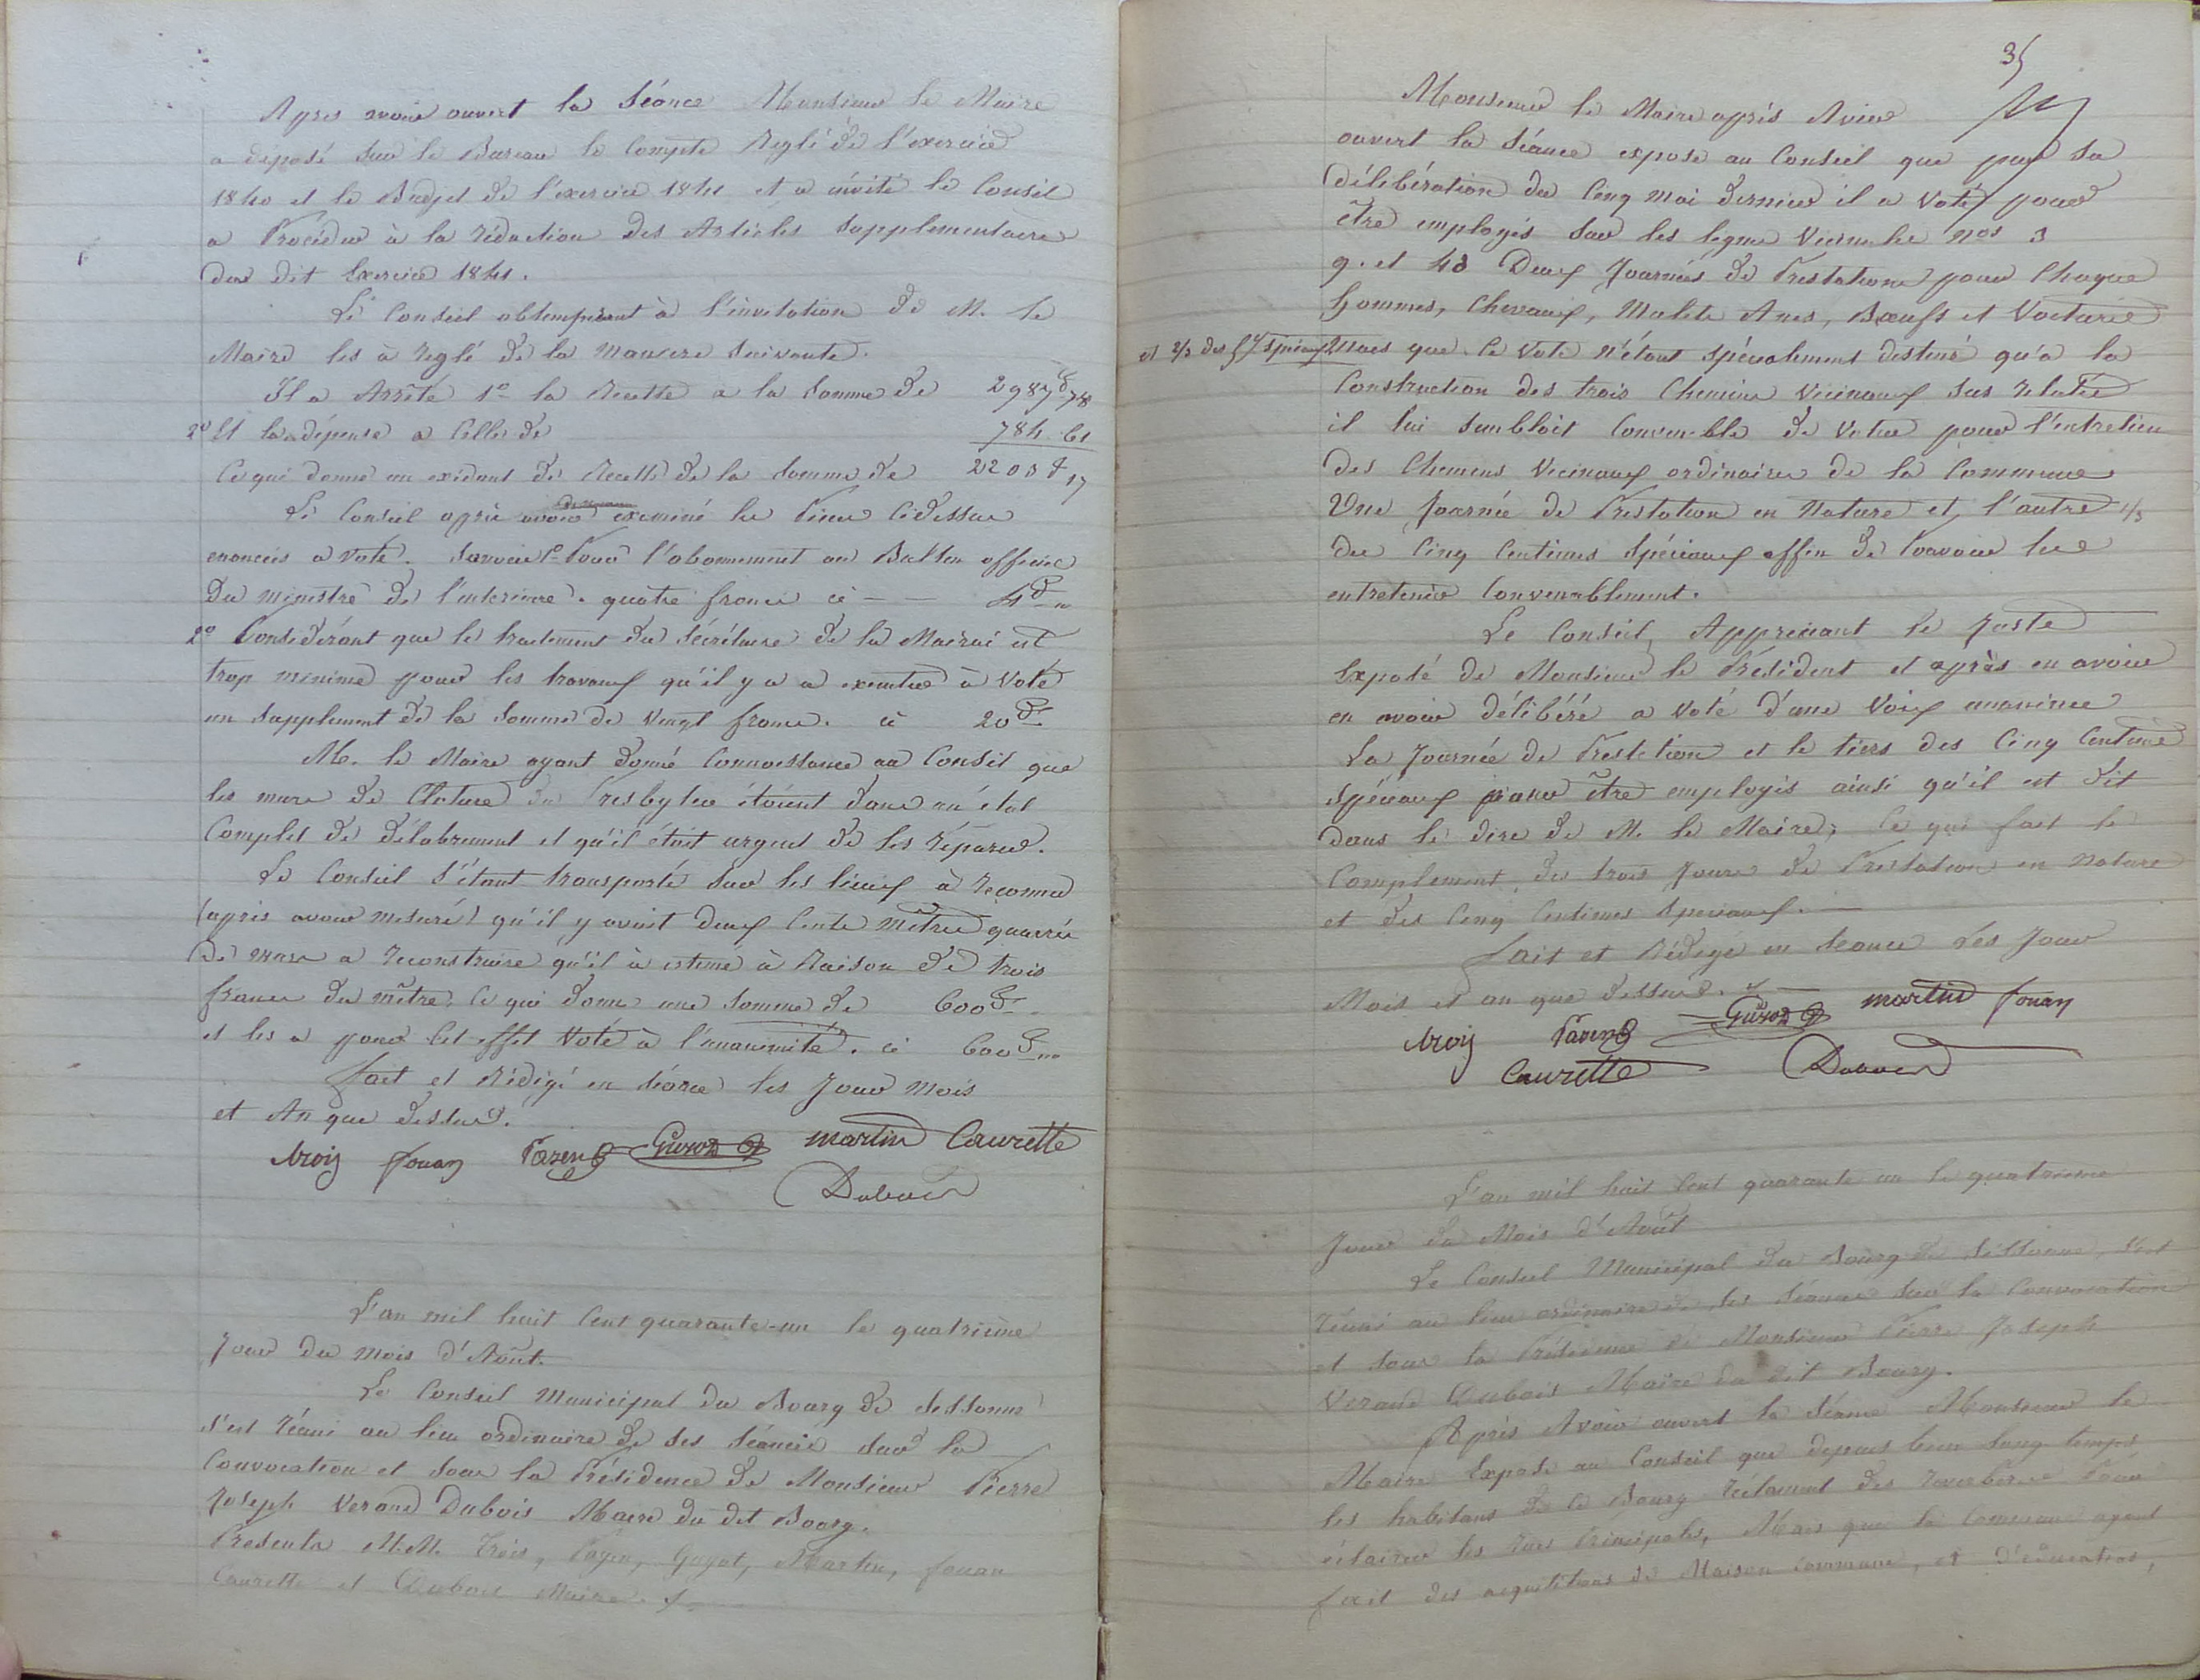 Apres avoir ouvert la Séance Monsieur le Maire
a déposé sur le Bureau le Compte Reglé de l'exercice
1840 et le Budget de l'exercice 1841 et a invité le Conseil
a Procéder à la rédaction des Articles Supplementaires
du dit Exercice 1841.
Le Conseil obtempérant à l'invitation de M. le
Maire les à reglé de la maniere Suivante.
Il a Arrêté 1º la Recette a la Somme de 2987 f 78
2º Et la dépense a Celle de 784 61
Ce qui donne un exédent de Recette de la Somme de 2203 f 17
Le Conseil après avoir examiné les Pieces Cidessus
enoncées a voté. Savoir 1º Pour l'abonnement au Bulten officiel
Du ministre de l'interieure. quatre francs ci — — 4 f "
2º Considérant que le traitement du Sécrétaire de la Mairie est
trop minime pour les travaux qu'il y a a executer à Voté
un Supplement de la Somme de Vingt francs. ci 20 f
M. le Maire ayant donné Connoissance au Conseil que
les murs de Cloture du Presbytere étoient dans un état
Complet de délabrement et qu'il étoit urgent de les réparer.
Le Conseil S'étant transporté Sur les lieux à reconnu
(après avoir mesuré) qu'il y avoit deux Cents mêtres quarrés
de murs a reconstruire qu'il à estimé à Raison de trois
francs du mêtre. Ce qui donne une Somme de 600 f
et les a pour Cet effet Voté à l'unanimité. ci 600 f "
Fait et Rédigé en Séance les Jour Mois
et An que dessus.
Troij Fouan Pazen Guyot martin Caurette
Dubois
L'an mil huit Cent quarante-un le quatrième
Jour du mois d'Août.
Le Conseil Municipal du Bourg de Sissonne
s'est réuni au lieu ordinaire de ses Séances Sur la
Convocation et Sous la Présidence de Monsieur Pierre
Joseph Verand Dubois Maire du dit Bourg.
Présents M.M. Trois, Payen, Guyot, Martin, fouan
Caurette et Dubois Maire.
35
Monsieur le Maire après Avoir
ouvert la Séance expose au Conseil que par Sa
délibération du Cinq mai dernier il a Voté pour
être employés Sur les lignes Vicinales nos 3
9. et 43 Deux Journées de Prestations pour Chaque
hommes, Chevaux, Mulets Anes, Bœufs et Voitures
et 2/3 des 5 c spéciaux Mais que Ce Vote n'étant Spécialement destiné qu'a la
Construction des trois Chemins Vicinaux Sus relatés
il lui Sembloit Convenable de Voter pour l'entretien
des Chemins Vicinaux ordinaires de la Commune
Une Journée de Prestation en Nature et l'autre 1/3
des Cinq Centimes Spéciaux affin de Pouvoir les
entretenir Convenablement.
Le Conseil, Appréciant le Juste
Exposé de Monsieur le Président et après en avoir
en avoir délibéré a Voté d'une Voix unanime
La Journée de Prestation et le tiers des Cinq Centimes
Spéciaux pour être employés ainsi qu'il est dit
dans le dire de M. le Maire; Ce qui fait le
Complement des trois Jours de Prestation en Nature
et des Cinq Centimes Speciaux.
Fait et Rédigé en Seance Les Jour
Mois et an que dessus.
Troij Pazen Guyot martin fouan
Caurette Dubois
L'an mil huit Cent quarante un le quatrieme
Jour du Mois d'Août
Le Conseil Municipal du Bourg de Sissonne, s'est
réuni au lieu ordinaire de ses Séances Sur la Convocation
et Sous la Présidence de Monsieur Pierre Joseph
Verand Dubois Maire du dit Bourg.
Après Avoir ouvert la Séance Monsieur le
Maire Expose au Conseil que depuis bien long temps
les habitans de Ce Bourg réclament des reverberes Pour
éclairer les rues Principales, Mais que la Commune ayant
fait des acquisitions de Maison Commune, et d'éducation,